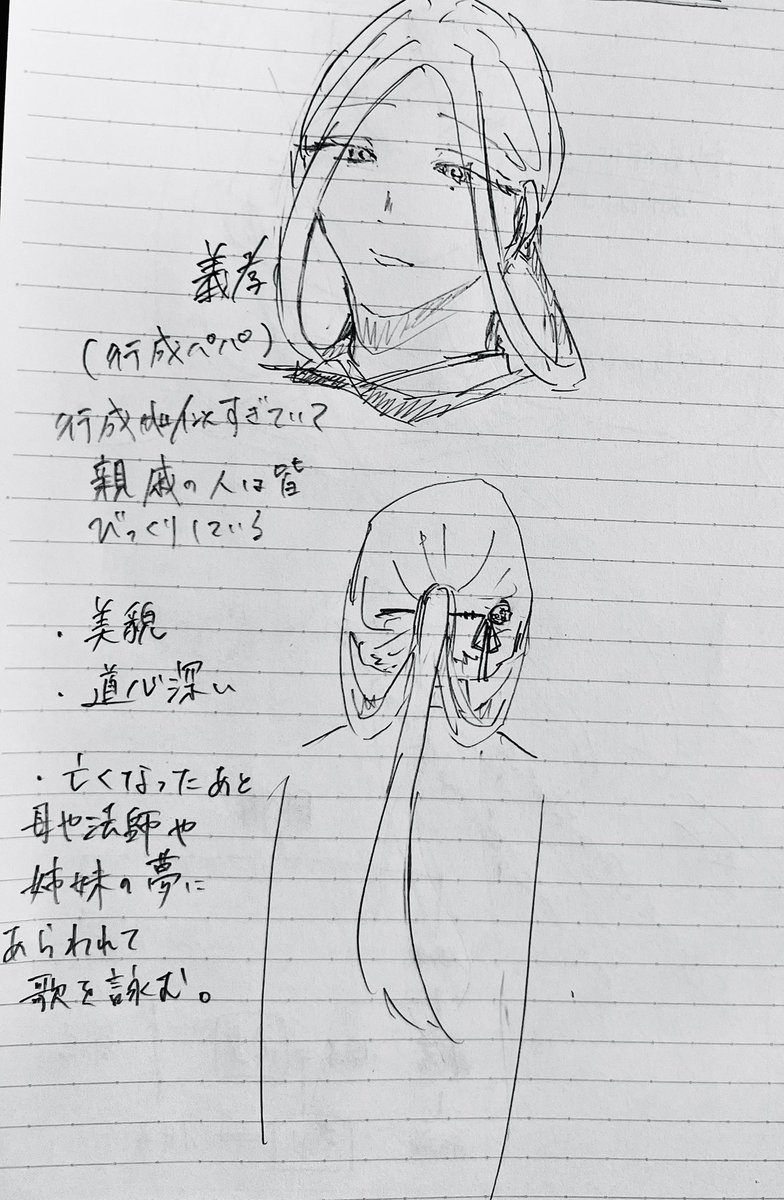 義孝
(行成パパ)
行成が似すぎていて
親戚の人は皆
びっくりしている
・美貌
・道心深い
・亡くなったあと
母や法師や
姉妹の夢に
あらわれて
歌を詠む。